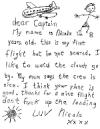 dear Captain
My name is Nicola im
8 years old, this is my first
flight but im not scared. I
like to watch the clouds go
by. My mum says the crew is
nice. I think your plane is
good. thanks for a nice flight
dont fuck up the landing
LUV Nicola
xxxx